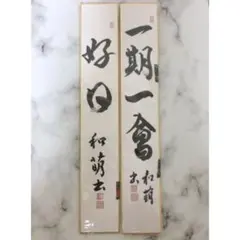 一期一會
和萌書
好日
和萌書